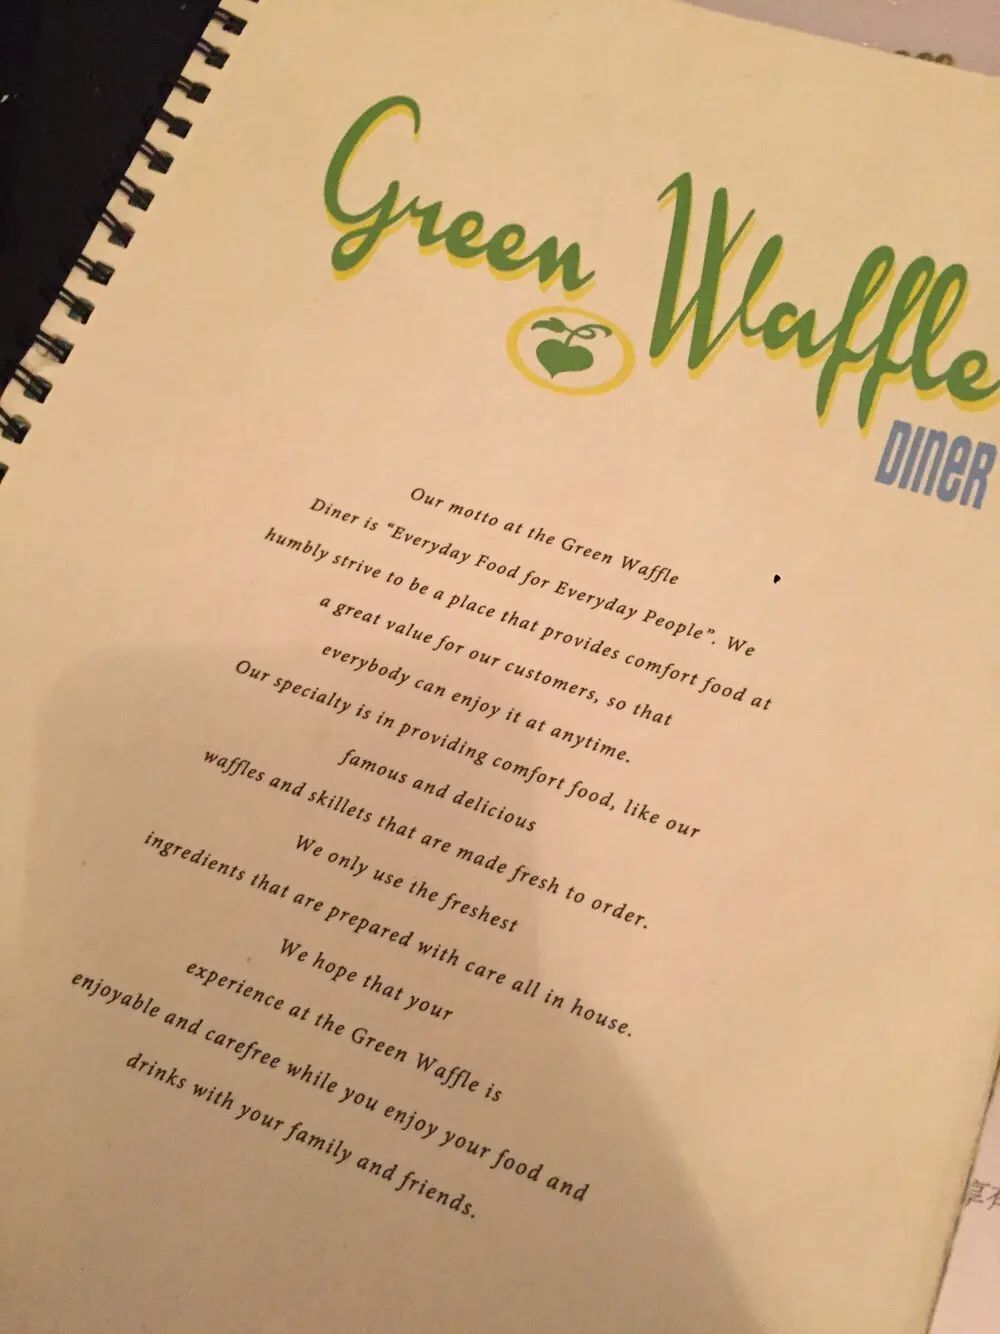 Green Waffle
DINER
Our motto at the Green Waffle
Diner is “Everyday Food for Everyday People”. We
humbly strive to be a place that provides comfort food at
a great value for our customers, so that
everybody can enjoy it at anytime.
Our specialty is in providing comfort food, like our
famous and delicious
waffles and skillets that are made fresh to order.
We only use the freshest
ingredients that are prepared with care all in house.
We hope that your
experience at the Green Waffle is
enjoyable and carefree while you enjoy your food and
drinks with your family and friends.